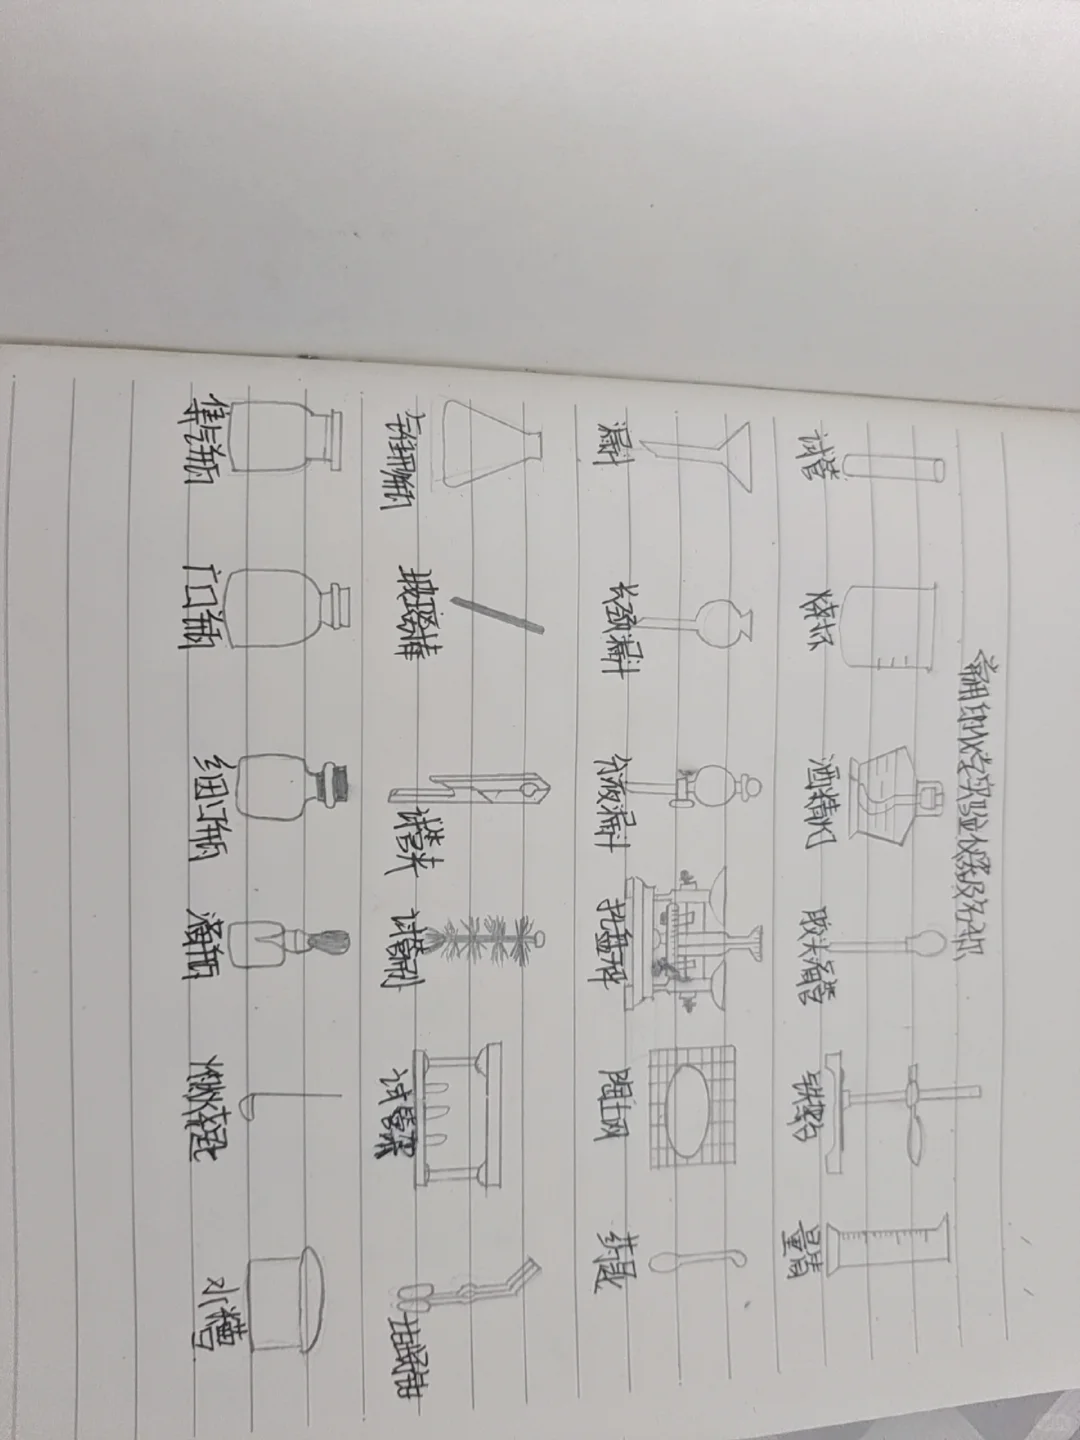 常用的化学实验仪器及名称
试管 烧杯 酒精灯 胶头滴管 铁架台 量筒
漏斗 长颈漏斗 分液漏斗 托盘天平 网 药匙
锥形瓶 玻璃棒 试管夹 试管刷 试管架 坩埚钳
集气瓶 广口瓶 细口瓶 滴瓶 燃烧匙 水槽